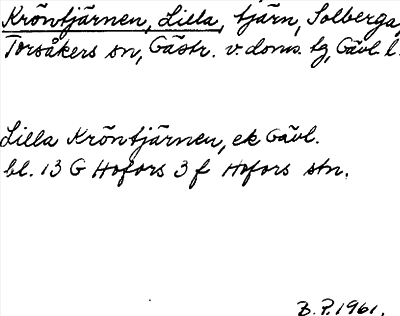 Kröntjärnen, Lilla, tjärn, Solberga,
Torsåkers sn, Gästr. v. doms. tg, Gävl. l.
Lilla Kröntjärnen, ek Gävl.
bl. 13 G Hofors 3 f Hofors stn.
B.P. 1961.